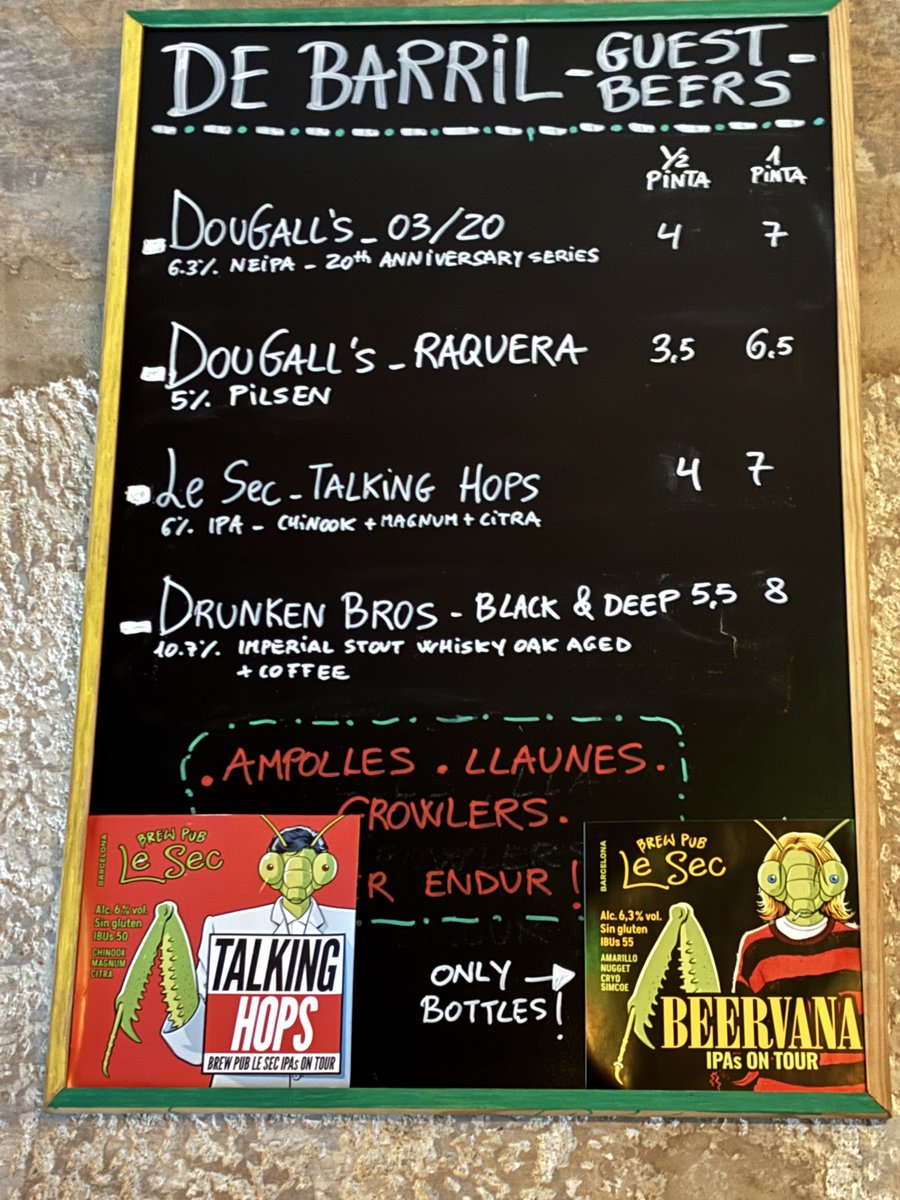 DE BARRIL - GUEST BEERS -
1/2 PINTA 1 PINTA
DOUGALL'S - 03/20 4 7
6.3% NEIPA - 20th ANNIVERSARY SERIES
DOUGALL'S - RAQUERA 3,5 6.5
5% PILSEN
Le Sec - TALKING HOPS 4 7
6% IPA - CHINOOK + MAGNUM + CITRA
DRUNKEN BROS - BLACK & DEEP 5,5 8
10.7% IMPERIAL STOUT WHISKY OAK AGED
+ COFFEE
. AMPOLLES . LLAUNES .
GROWLERS .
R ENDUR!
ONLY →
BOTTLES!
BARCELONA
BREW PUB
Le Sec
Alc. 6% vol.
Sin gluten
IBUs 50
CHINOOK
MAGNUM
CITRA
TALKING
HOPS
BREW PUB LE SEC IPAs ON TOUR
BARCELONA
BREW PUB
Le Sec
Alc. 6,3% vol.
Sin gluten
IBUs 55
AMARILLO
NUGGET
CRYO
SIMCOE
BEERVANA
IPAs ON TOUR